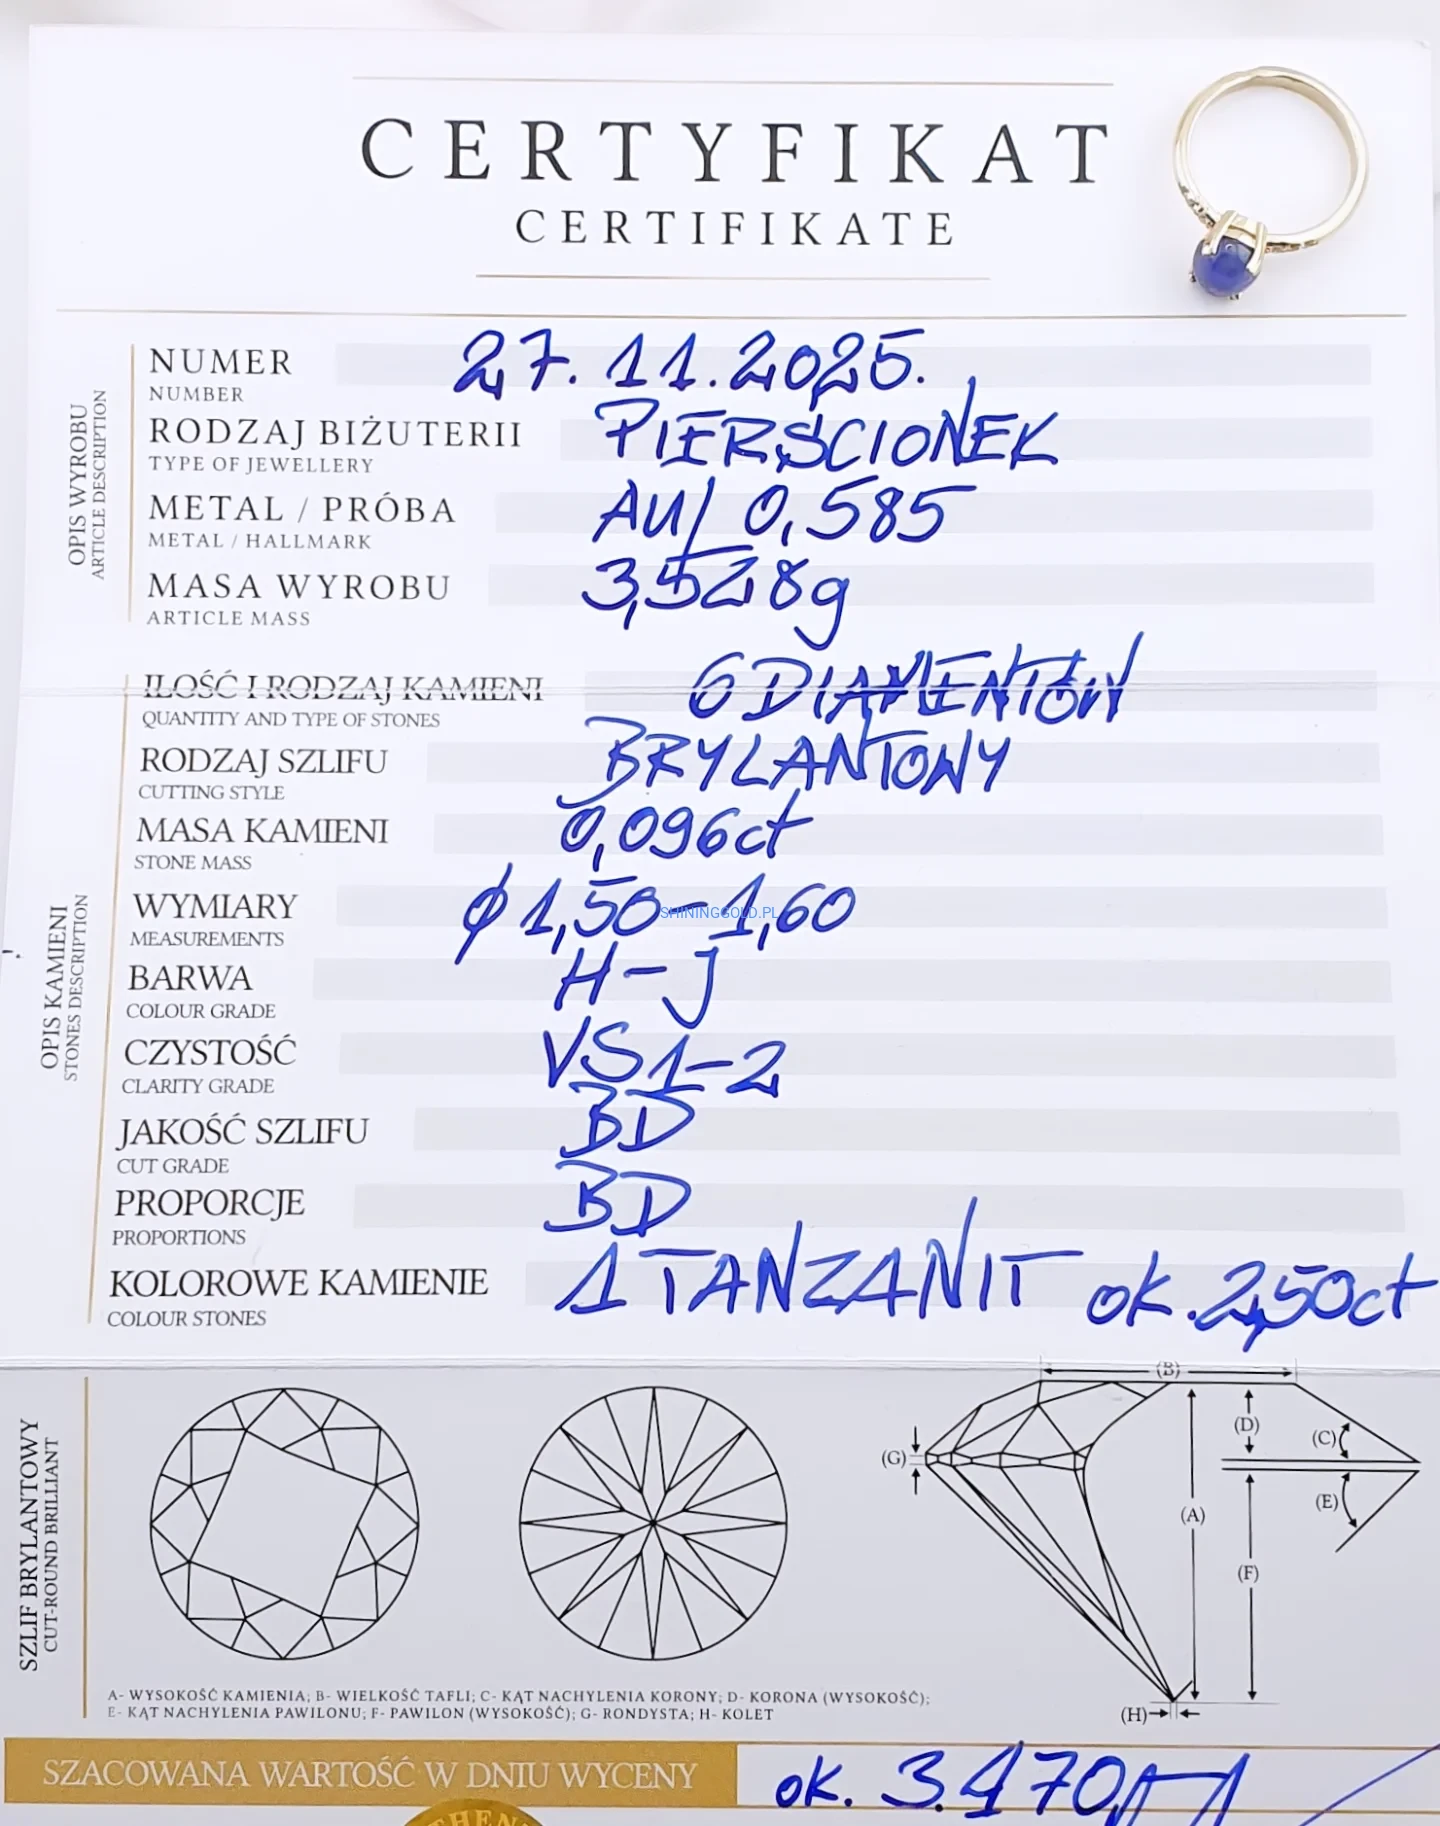 CERTYFIKAT
CERTIFIKATE
NUMER 27.11.2025.
NUMBER
RODZAJ BIŻUTERII PIERŚCIONEK
TYPE OF JEWELLERY
METAL / PRÓBA AU/ 0,585
METAL / HALLMARK
MASA WYROBU 3,528g
ARTICLE MASS
OPIS WYROBU
ARTICLE DESCRIPTION
ILOŚĆ I RODZAJ KAMIENI 6 DIAMENTÓW
QUANTITY AND TYPE OF STONES
RODZAJ SZLIFU BRYLANTOWY
CUTTING STYLE
MASA KAMIENI 0,096ct
STONE MASS
WYMIARY ϕ 1,50-1,60
SHININGGOLD.PL
MEASUREMENTS
BARWA H-J
COLOUR GRADE
CZYSTOŚĆ VS1-2
CLARITY GRADE
JAKOŚĆ SZLIFU BD
CUT GRADE
PROPORCJE BD
PROPORTIONS
KOLOROWE KAMIENIE 1 TANZANIT ok. 2,50ct
COLOUR STONES
OPIS KAMIENI
STONES DESCRIPTION
SZLIF BRYLANTOWY
CUT-ROUND BRILLIANT
(B)
(D)
(C)
(G)
(E)
(A)
(F)
(H)
A- WYSOKOŚĆ KAMIENIA; B- WIELKOŚĆ TAFLI; C- KĄT NACHYLENIA KORONY; D- KORONA (WYSOKOŚĆ);
E- KĄT NACHYLENIA PAWILONU; F- PAWILON (WYSOKOŚĆ); G- RONDYSTA; H- KOLET
SZACOWANA WARTOŚĆ W DNIU WYCENY ok. 3.470